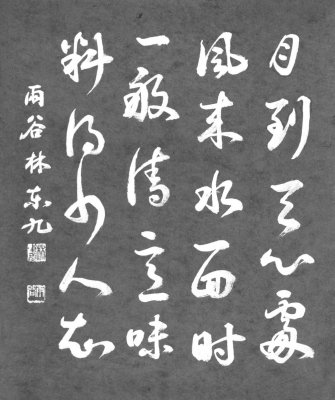 月到天心處
風来水面时
一般清意味
料得少人知
雨谷林东九